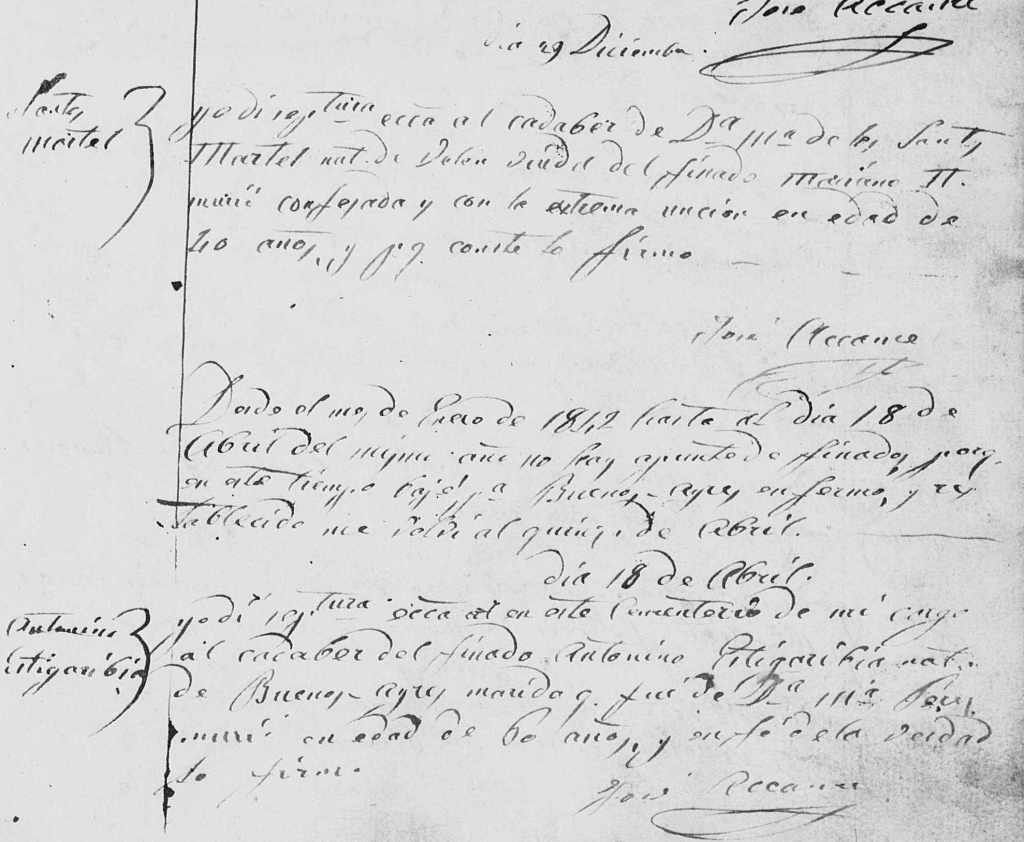 José Accame
dia 29 Diciembre.
Santos
Martel
yo di sept.tura ecca al cadaber de D.a M.a de los Santos
Martel nat. de Velen viuda del finado Mariano II.
murió confesada y con la extrema uncion en edad de
40 años, y p.q. conste lo firmo
José Accame
Desde el mes de Enero de 1842 hasta al dia 18 de
Abril del mismo año no hay apunte de finados, porq.
en este tiempo bajé p.a Buenos-Ayres enfermo, y res
tablecido me volvi al quinze de Abril.
dia 18 de Abril.
Antonino
Estigaribia
yo di sep.tura ecca en este Cementerio de mi cargo
al cadaber del finado Antonino Estigaribia nat.
de Buenos-Ayres marido q. fué de D.a M.a
murió en edad de 60 años, y en fé de la verdad
lo firmo
José Accame